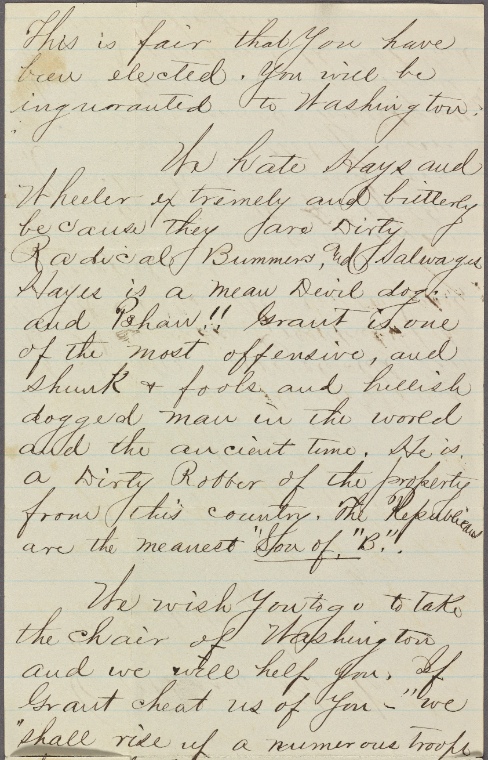 This is fair that You have
been elected. You will be
inguoranted to Washington.
We hate Hays and
Wheeler extremely and bitterly
because they are Dirty
Radical Bummers, and Salwages
Hayes is a mean Devil dog.
and, Pshaw!! Grant is one
of the most offensive, and
shunk & fools and hellish
dogged man in the world
and the ancient time. He is
a Dirty Robber of the property
from this country. The "Republicans
are the meanest "Son of," "B.".
We wish You to go to take
the chair of Washington
and we will help you. If
Grant cheat us of You - "we
"shall rise up a numerous troops